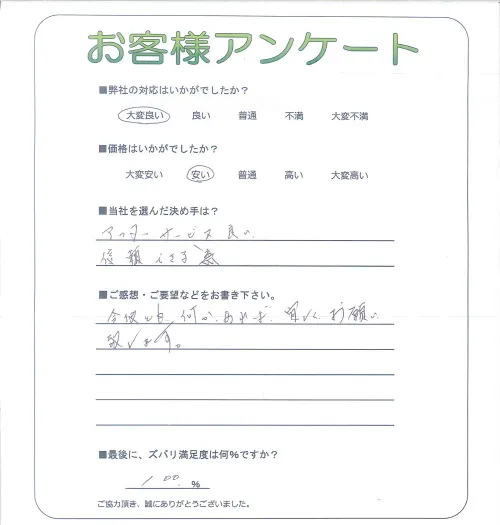 お客様アンケート
■弊社の対応はいかがでしたか?
大変良い 良い 普通 不満 大変不満
■価格はいかがでしたか?
大変安い 安い 普通 高い 大変高い
■当社を選んだ決め手は?
アフターサービス良い
信頼できる
■ご感想・ご要望などをお書き下さい。
今後とも何かあれば、宜しくお願い
致します。
■最後に、ズバリ満足度は何%ですか?
100 %
ご協力頂き、誠にありがとうございました。